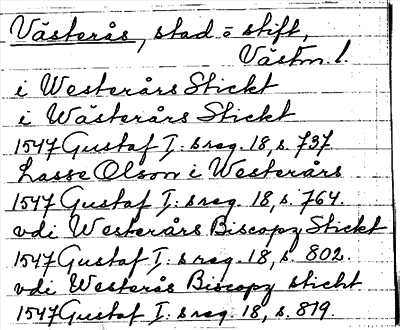 Västerås, stad o stift,
Västm. l.
i Westerårs Stickt
i Wästerårs Stickt
1547 Gustaf I: s reg. 18, s. 737
Lasse Olson i Westerårs
1547 Gustaf I: s reg. 18, s. 764.
vdi Westerårs Biscopz Stickt
1547 Gustaf I: s reg. 18, s. 802.
vdi Westerås Biscopz stickt
1547 Gustaf I: s reg. 18, s. 819.